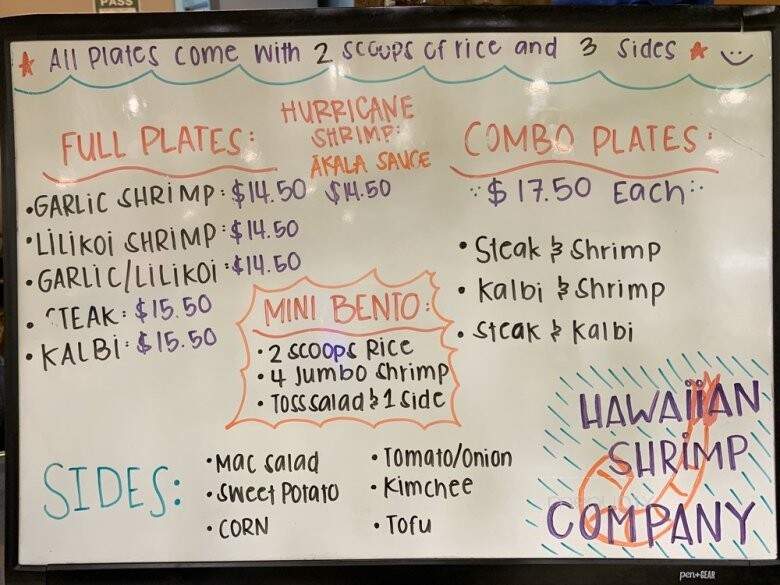 PASS
All Plates come with 2 scoops of rice and 3 sides
FULL PLATES:
• GARLIC SHRIMP: $14.50
• LILIKOI SHRIMP: $14.50
• GARLIC/LILIKOI: $14.50
• STEAK: $15.50
• KALBI: $15.50
HURRICANE
SHRIMP:
ĀKALA SAUCE
$14.50
COMBO PLATES:
$17.50 Each
• Steak & Shrimp
• Kalbi & Shrimp
• Steak & Kalbi
MINI BENTO:
• 2 scoops Rice
• 4 Jumbo Shrimp
• Toss salad & 1 side
SIDES:
• Mac salad
• Sweet Potato
• CORN
• Tomato/Onion
• Kimchee
• Tofu
HAWAIIAN
SHRIMP
COMPANY
pen+GEAR